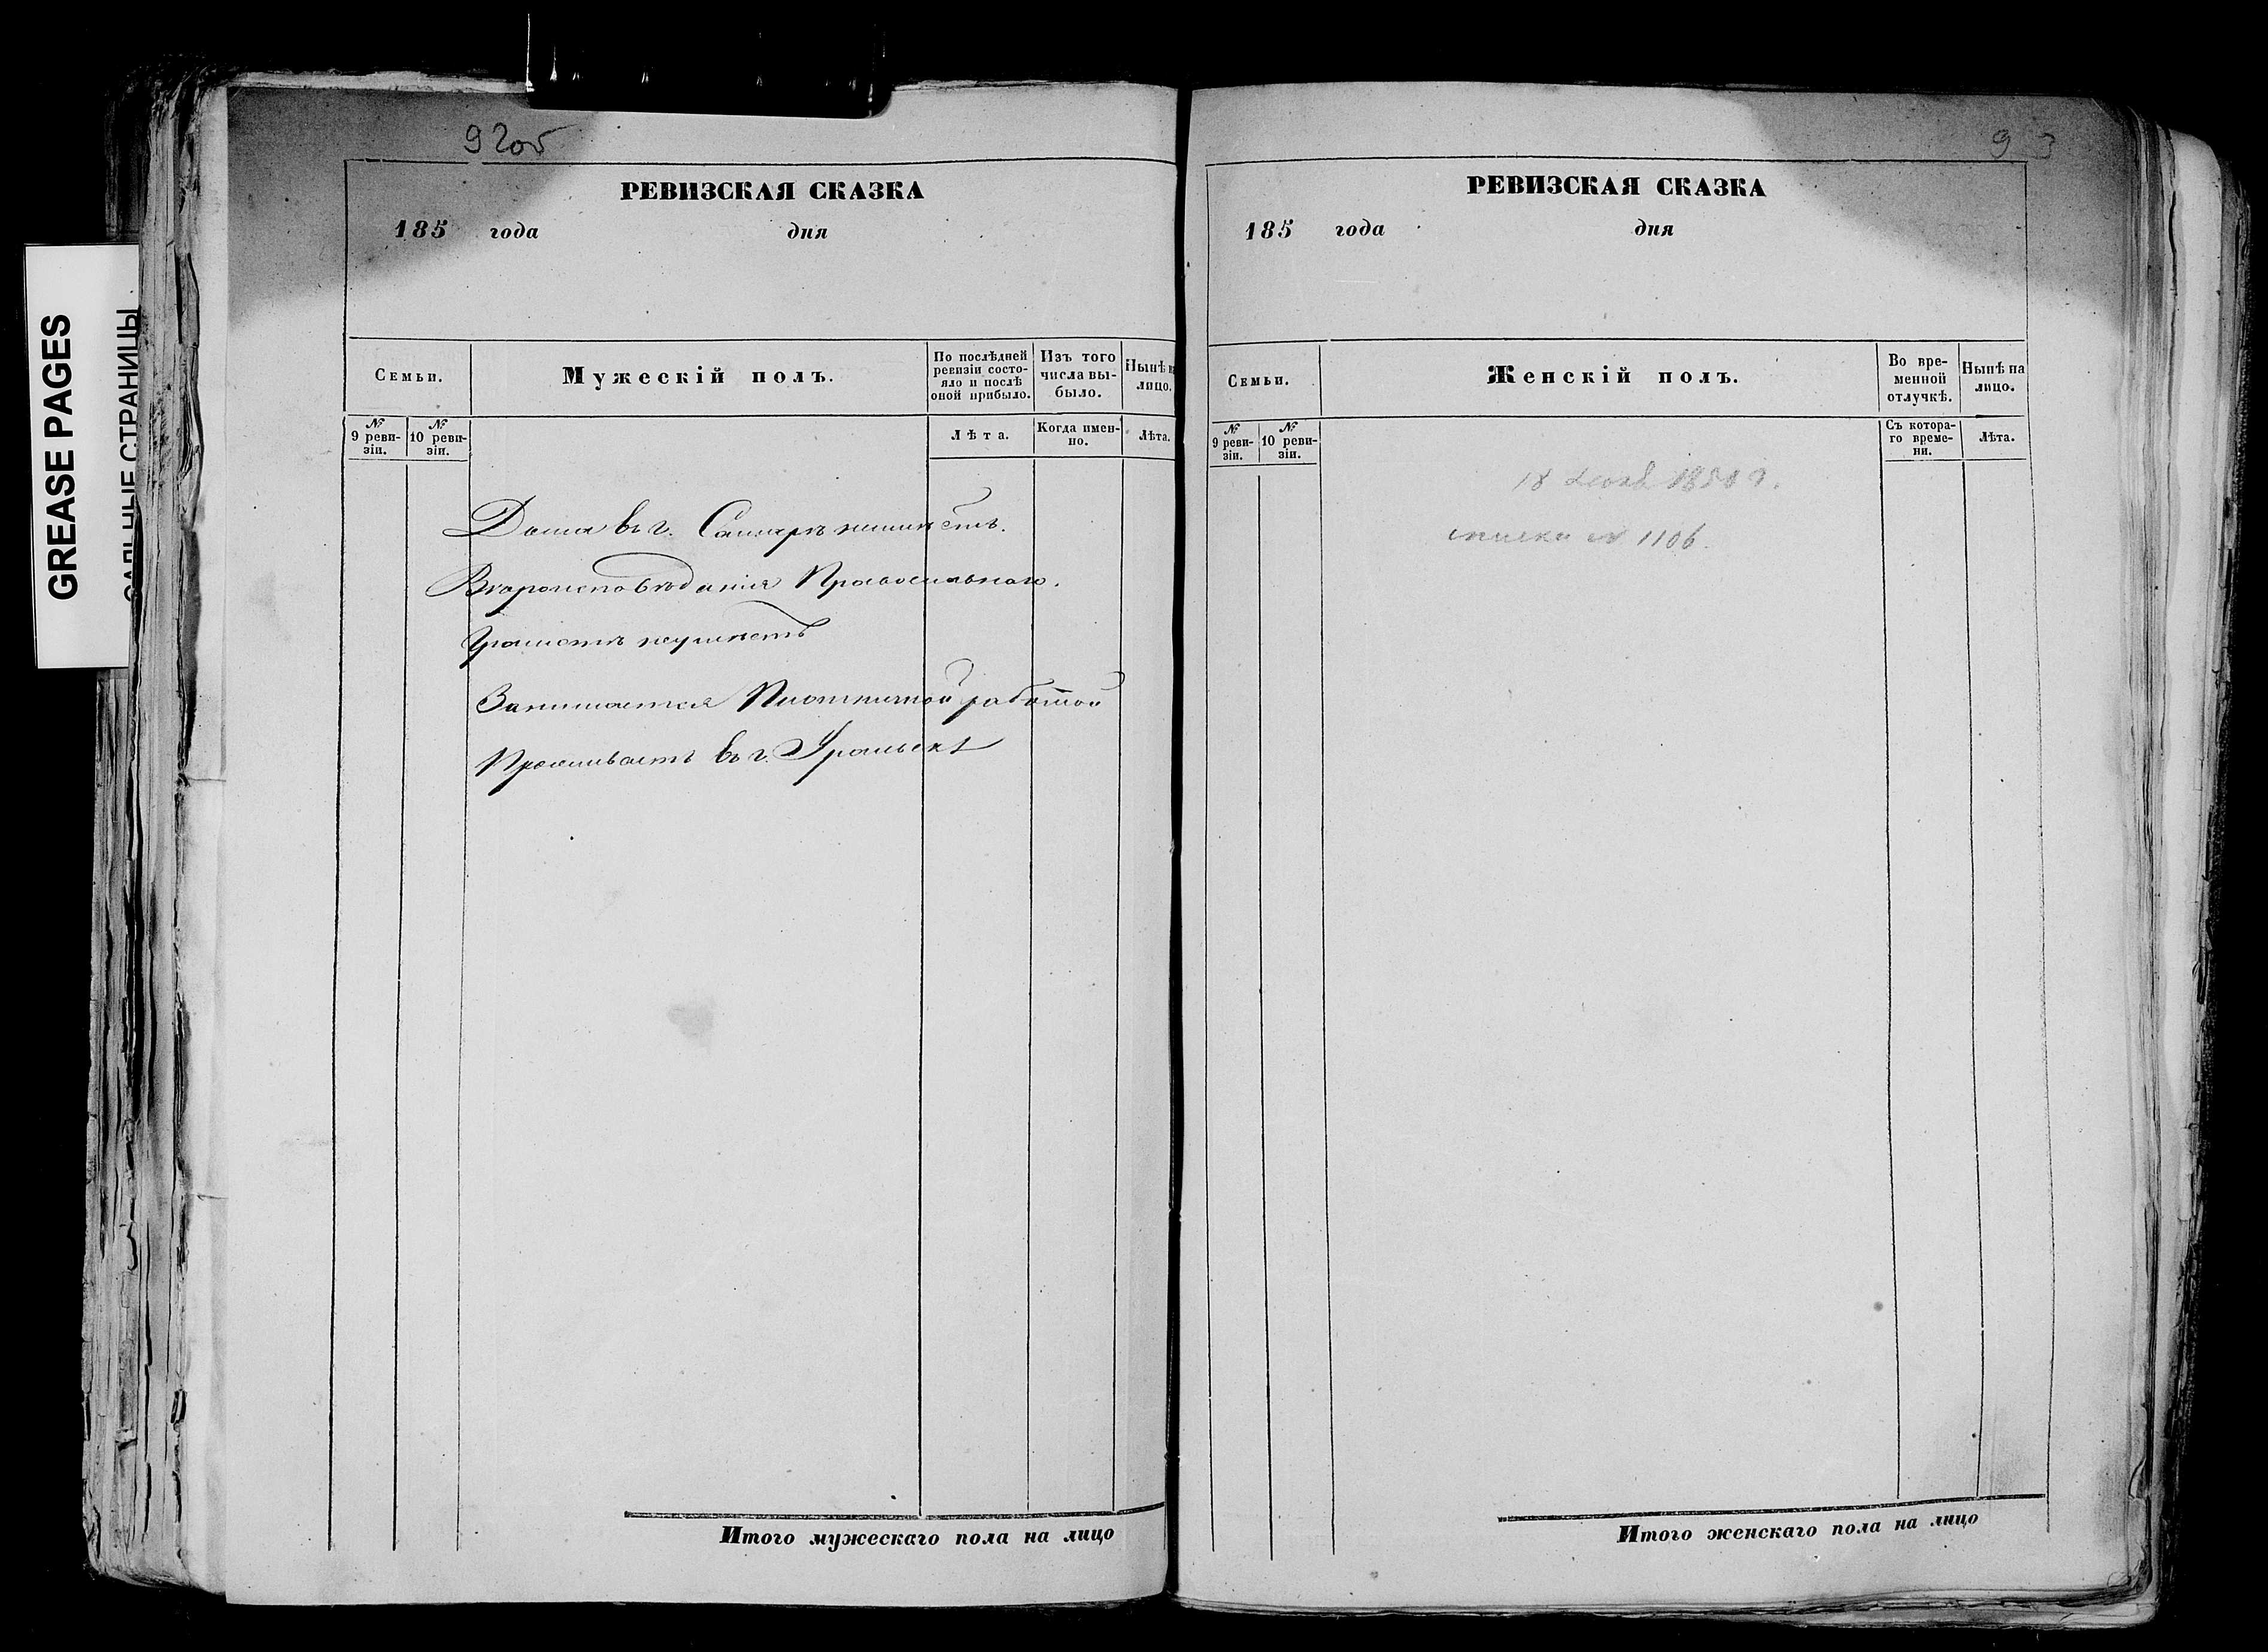 GREASE PAGES
САЛЬНЫЕ СТРАНИЦЫ
92об
РЕВИЗСКАЯ СКАЗКА
185 года дня
Семьи.
Мужескій полъ.
По послѣдней ревизіи состояло и послѣ оной прибыло.
Изъ того числа выбыло.
Нынѣ на лицо.
№ 9 ревизіи.
№ 10 ревизіи.
Лѣта.
Когда именно.
Лѣта.
Дома въ г. Самарѣ неимѣетъ.
Вѣроисповѣданія Православнаго.
Грамотѣ неумѣетъ
Занимается Плотничной работой
Проживаетъ въ г. Уральскѣ
Итого мужескаго пола на лицо
93
РЕВИЗСКАЯ СКАЗКА
185 года дня
Семьи.
Женскій полъ.
Во временной отлучкѣ.
Нынѣ на лицо.
№ 9 ревизіи.
№ 10 ревизіи.
Съ котораго времени.
Лѣта.
18
№ 1106.
Итого женскаго пола на лицо